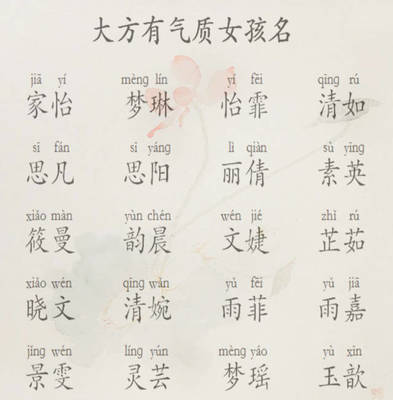 大方有气质女孩名
jiā yí mèng lín yí fēi qīng rú
家怡 梦琳 怡霏 清如
sī fán sī yáng lì qiàn sù yīng
思凡 思阳 丽倩 素英
xiǎo màn yùn chén wén jié zhǐ rú
筱曼 韵晨 文婕 芷茹
xiǎo wén qīng wǎn yǔ fēi yǔ jiā
晓文 清婉 雨菲 雨嘉
jǐng wén líng yún mèng yáo yù xīn
景雯 灵芸 梦瑶 玉歆